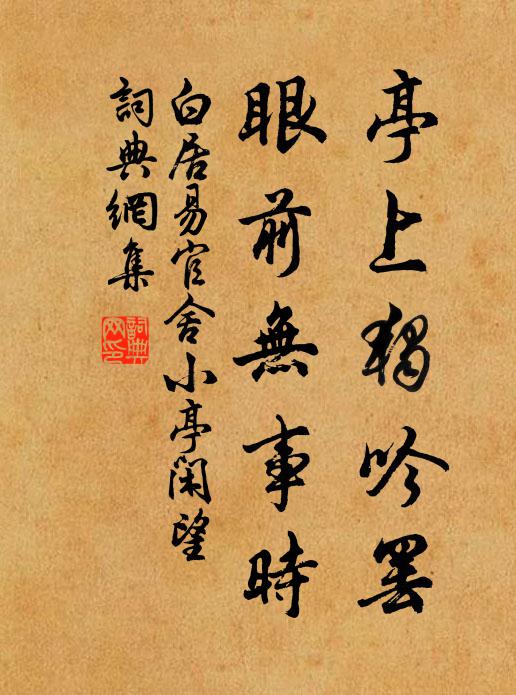 亭上獨吟罷
眼前無事時
白居易官舍小亭閑望
詞典網集
詞典網印